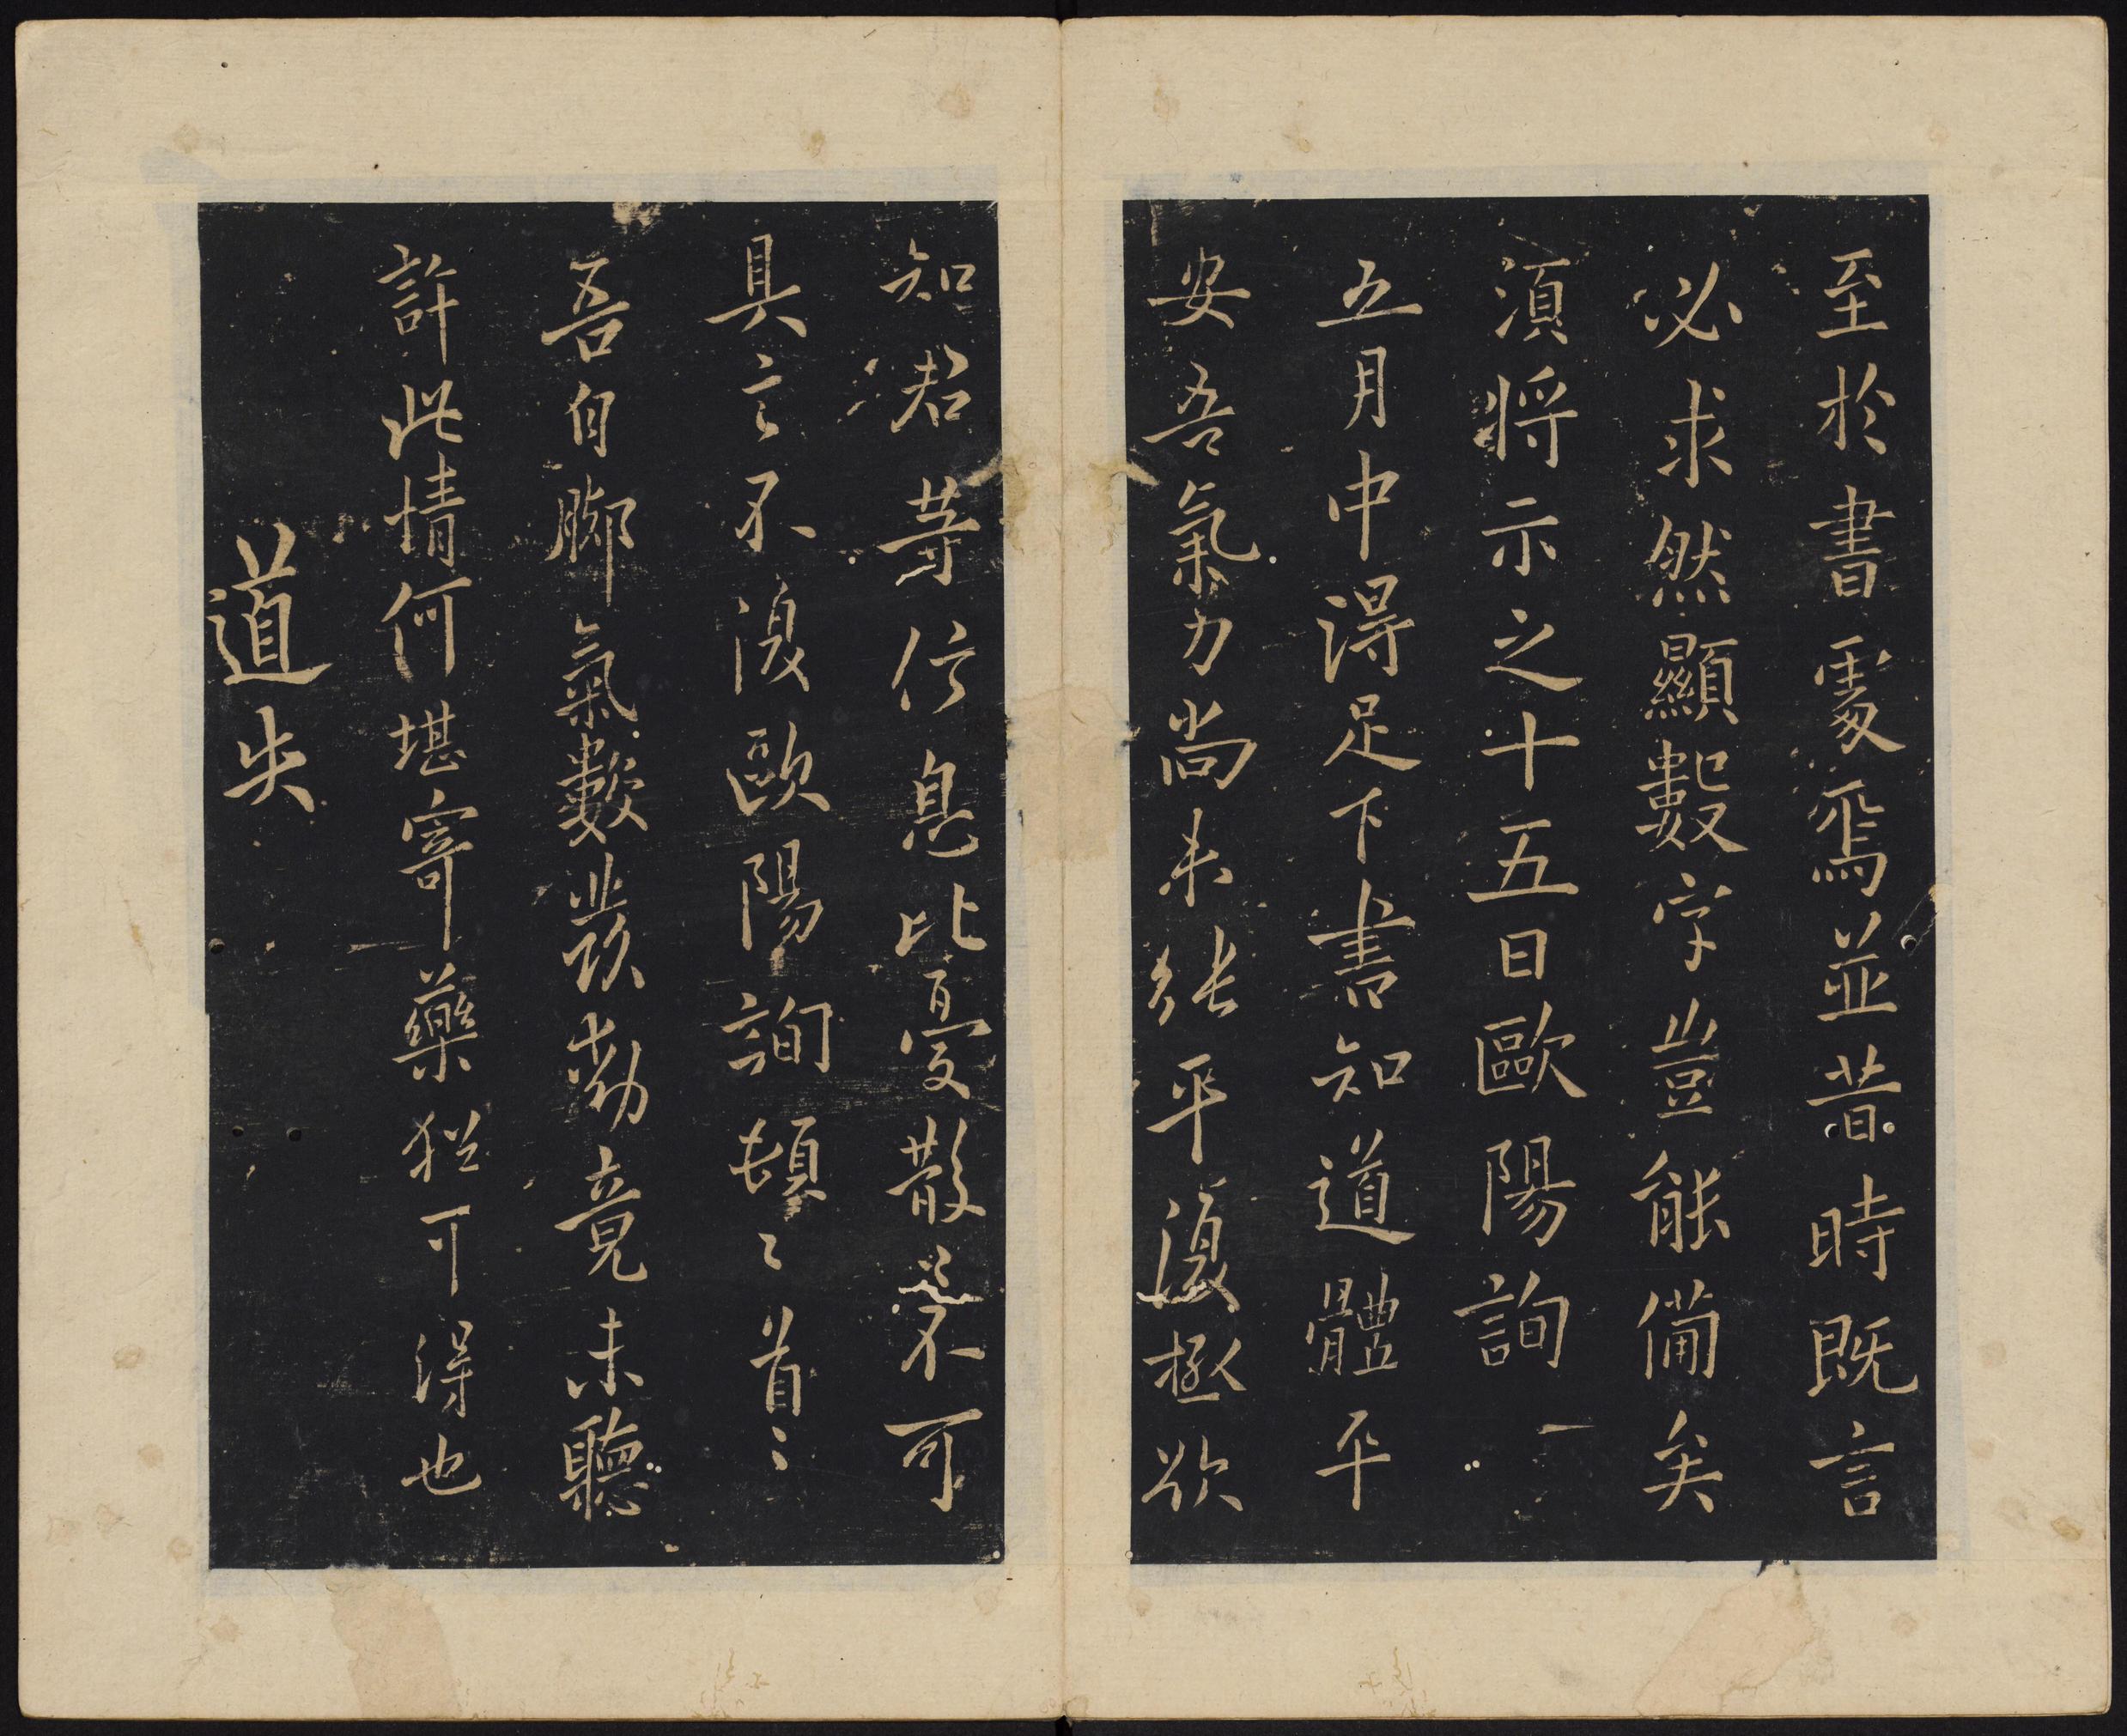 至於書處焉並昔時既言
必求然顯數字豈能備矣
須將示之十五日歐陽詢
五月中得足下書知道體平
安吾氣力尚未能平復極欲
知君等信息比憂散不可
具言不復歐陽詢頓〻首〻
吾自腳氣數發動竟未聽
許此情何堪寄藥猶可得也
道失